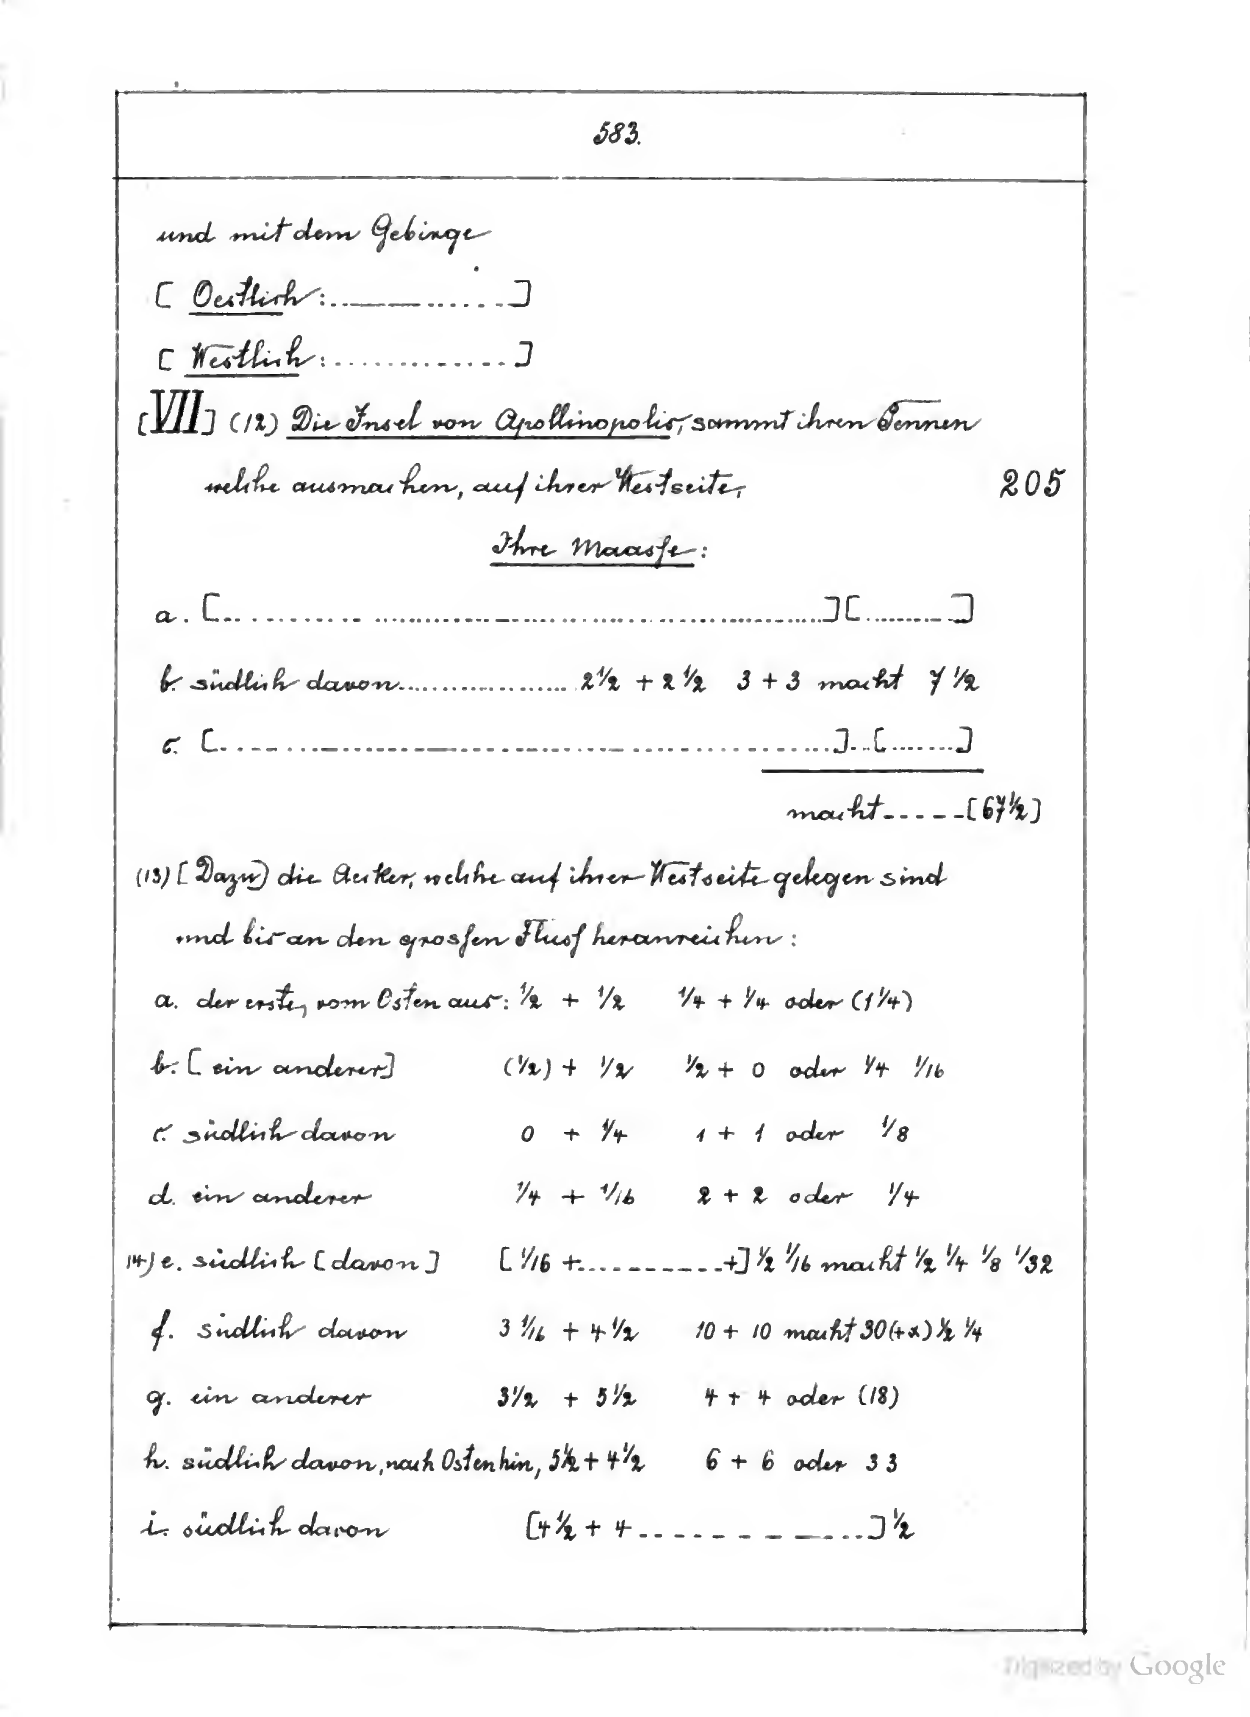 583.
und mit dem Gebirge
[ Oestlich: ............ ]
[ Westlich: ............ ]
[VII] (12) Die Insel von Apollinopolis, sammt ihren Tennen
welche ausmachen, auf ihrer Westseite, 205
Ihre Maasse:
a. [............................................][.........]
b. südlich davon.................. 2½ + 2½ 3 + 3 macht 7½
c. [............................................]..[.......]
macht------[67½]
(13) [Dazu] die Aecker, welche auf ihrer Westseite gelegen sind
und bis an den grossen Fluss heranreichen:
a. der erste, vom Osten aus: ½ + ½ ¼ + ¼ oder (1¼)
b. [ein anderer] (½) + ½ ½ + 0 oder ¼ 1/16
c. südlich davon 0 + ¼ 1 + 1 oder 1/8
d. ein anderer ¼ + 1/16 2 + 2 oder ¼
14) e. südlich [davon] [1/16 +..........+] ½ 1/16 macht ½ ¼ 1/8 1/32
f. südlich davon 3 1/16 + 4½ 10 + 10 macht 30(+x) ½ ¼
g. ein anderer 3½ + 5½ 4 + 4 oder (18)
h. südlich davon, nach Osten hin, 5½ + 4½ 6 + 6 oder 33
i. südlich davon [4½ + 4 ------------] ½
Digitized by Google